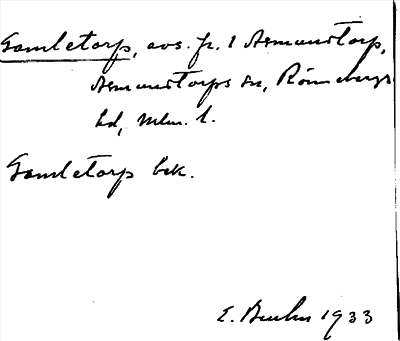 Gamletorp, avs. fr. 1 Asmundstorp,
Asmundstorps sn, Rönnebergs
hd, Mlm. l.
Gamletorp bek.
E. 1933